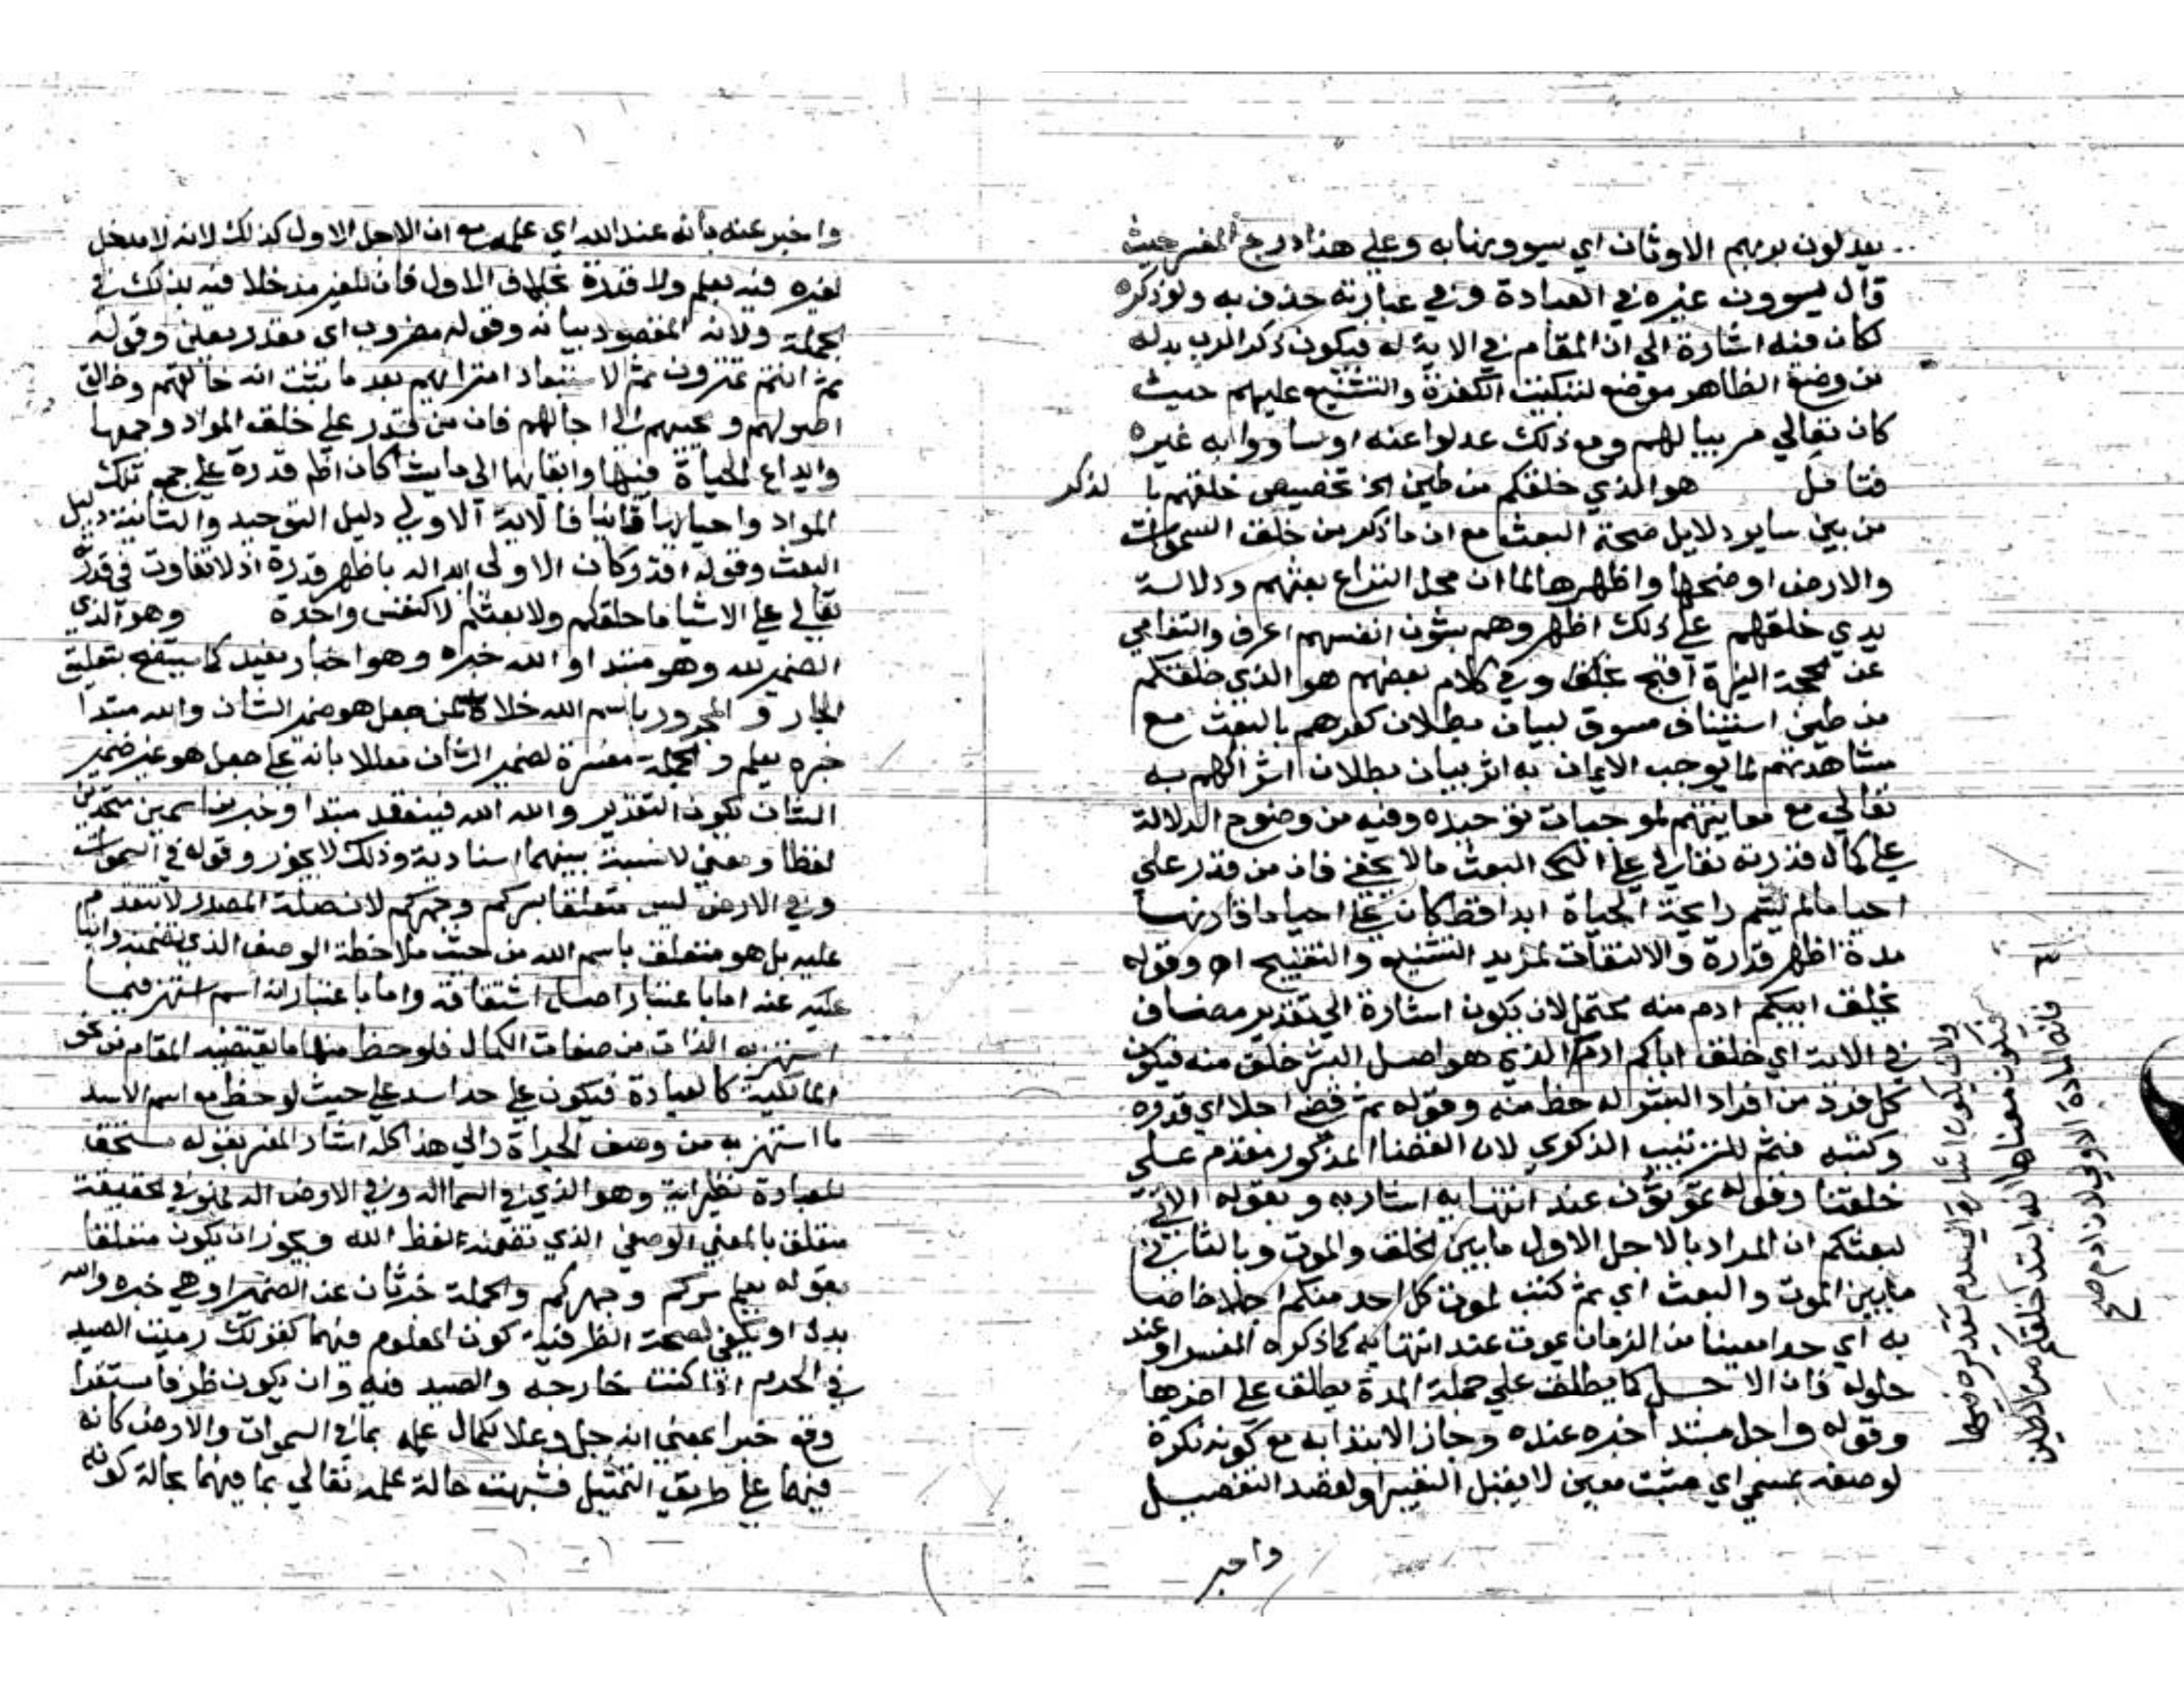 يعدلون بربهم الاوثان اي يسوونها به وعلي هذا درج المفسر حيث
قال يسوون غيره في العبادة وفي عبارته حذف به ولو ذكره
لكان فيه اشارة الي ان المقام في الاية له فيكون ذكر الرب بدله
من وضع الظاهر موضع لتبكيت الكفرة والتشنيع عليهم حيث
كان تعالي مربيا لهم ومع ذلك عدلوا عنه او ساووا به غيره
فتامل هو الذي خلقكم من طين الخ تخصيص خلقهم با لذكر
من بين ساير دلايل صحة البعث مع ان ما ذكر من خلق السموات
والارض اوضحها واظهرها لما ان محل النزاع بعثهم ودلالة
بدي خلقهم علي ذلك اظهر وهم بشون انفسهم اعرف والتعامي
عن الحجة النيرة اقبح وفي كلام بعضهم هو الذي خلقكم
من طين استيناف مسوق لبيان بطلان كفرهم بالبعث مع
مشاهدتهم لما يوجب الايمان به اثر بيان بطلان اشراكهم به
تعالي مع معاينتهم لموجبات توحيده وفيه من وضوح الدلالة
علي كمال قدرته تعالي علي البعث ما لا يخفي فان من قدر علي
احيا ما لم يشم رايحة الحياة ابدا قط كان علي احيا ما قارنها
مدة اظهر قدرة والالتفات لمزيد التشنيع والتقبيح اه وقوله
بخلق ابيكم ادم منه يحتمل لان يكون اشارة الي تقدير مضاف
في الاية اي خلق اباكم ادم الذي هو اصل البشر خلق منه فيكون
كل فرد من افراد البشر له حظ منه وقوله ثم قضي اجلا اي قدره
وكتبه فثم للترتيب الذكري لان القضا المذكور مقدم علي
خلقنا وقوله تموتون عند انتهايه اشار به وبقوله الاتي
لبعثكم ان المراد بالاجل الاول ما بين الخلق والموت وبالثاني
ما بين الموت والبعث اي ثم كتب لموت كل احد منكم اجلا خاصا
به اي حدا معينا من الزمان يموت عند انتهايه كما ذكره المفسر او عند
حلوله فان الاجل كما يطلق علي جملة المدة يطلق علي اخرها
وقوله واجل مبتدا خبره عنده وجاز الابتدا به مع كونه نكرة
لوصفه بمسمي اي مثبت معين لا يقبل التغيير ولقصد التفصيل
واخبر
ولان يكون اشارة الي عدم تقدير مضاف
فيكون معناها انه ابتدا خلقكم من الطين
فانه المادة الاولي لان ادم
صح
واخبر عنه بانه عند الله اي علمه مع ان الاجل الاول كذلك لانه لا مدخل
لغيره فيه بعلم ولا قدرة بخلاف الاول فان للغير مدخلا فيه بذلك في
الجملة ولانه المقصود بيانه وقوله مضروب اي مقدر يعلي وقوله
ثم انتم تمترون ثم لاستبعاد امترايهم بعد ما ثبت انه خالقهم وخالق
اصولهم ومحييهم الي اجالهم فان من قدر علي خلق المواد وجمعها
وايداع الحياة فيها وابقايها الي ما يشا كان اظهر قدرة علي جمع تلك
المواد واحيايها ثانيا فالاية الاولي دليل التوحيد والثانية دليل
البعث وقوله اقدر وكان الاولي ابداله باظهر قدرة اذ لا تفاوت في قدرته
تعالي علي الاشيا ما خلقكم ولا بعثكم الا كنفس واحدة وهو الذي
الضمير لله وهو مبتدا والله خبره وهو اخبار يفيد كما سيتضح بتعليق
الجار والمجرور باسم الله خلافا لمن جعل هو ضمير الشان والله مبتدا
خبره يعلم والجملة مفسرة لضمير الشان معللا بانه علي جعل هو غير ضمير
الشان يكون التقدير والله الله فينعقد مبتدا وخبر من اسمين متحدين
لفظا ومعني لا نسبة بينهما اسنادية وذلك لا يجوز وقوله في السموات
وفي الارض ليس متعلقا بسركم وجهركم لان صلة المصدر لا تتقدم
عليه بل هو متعلق باسم الله من حيث ملاحظة الوصف الذي تضمنه
عليه عنه اما باعتبار اصل اشتقاقه واما باعتبار انه اسم اشتهر فيما
اشتهر به الذات من صفات الكمال فلوحظ منها ما يقتضيه المقام من نحو
المالكية كالعبادة فيكون علي حد اسد علي حيث لوحظ مع اسم الاسد
ما اشتهر به من وصف الجراة والي هذا كله اشار المفسر بقوله مستحق
للعبادة نظير اية وهو الذي في السما اله وفي الارض اله فهو في الحقيقة
متعلق بالمعني الوصفي الذي تضمنه لفظ الله ويجوز ان يكون متعلقا
بقوله يعلم سركم وجهركم والجملة خبر ثان عن الضمير او هي خبره والله
بدل او يكفي لصحة الظرفية كون المعلوم فيهما كقولك رميت الصيد
في الحرم اذا كنت خارجه والصيد فيه وان يكون ظرفا مستقرا
وقع خبرا بمعني انه جل وعلا لكمال علمه بما في السموات والارض كانه
فيهما علي طريق التمثيل فشبهت حالة علمه تعالي بما فيهما بحالة كونه